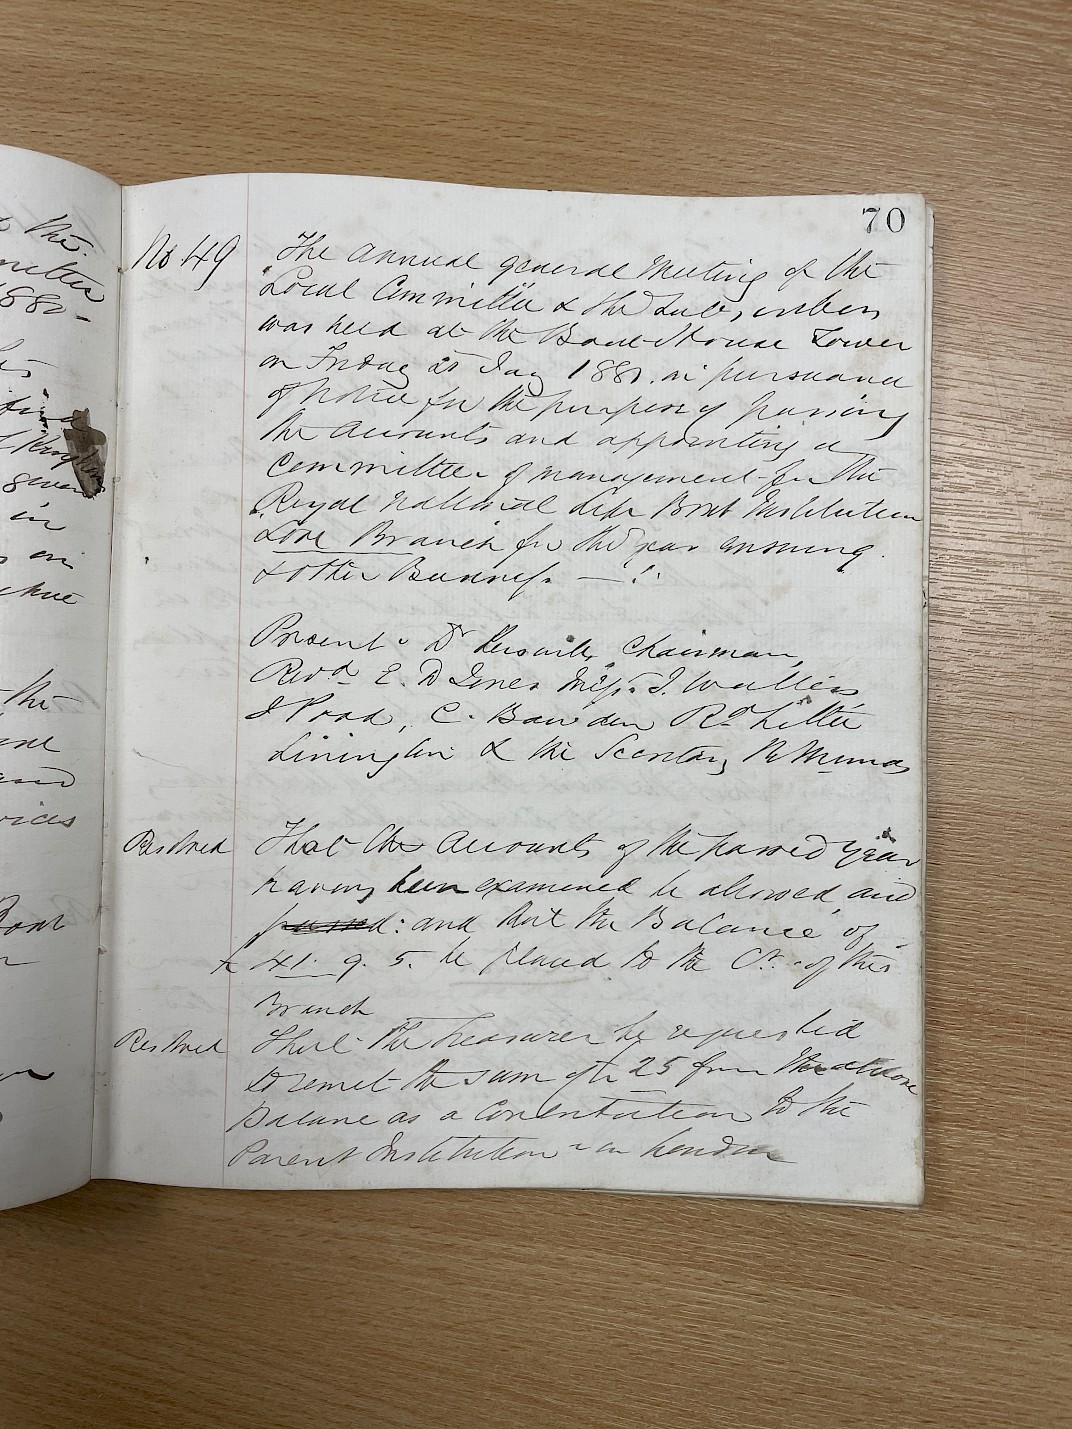 70
No 49
The Annual general Meeting of the
Local Committee & the Subscribers
was held at the Boat House Tower
on Friday 25 1881. in pursuance
of Notice for the purpose of passing
the accounts and appointing a
Committee of management for the
Royal National Life Boat Institution
Looe Branch for the year ensuing.
& other Business —
Present Dr Chairman
Revd E. D Jones Messrs J. Wallis
J Poad, C. Bawden Rd Littleton
Linington & the Secretary
Resolved That the accounts of the passed year
having been examined be allowed and
passed: and that the Balance of
£ 41. 9. 5. be placed to the Cr. of this
Branch
Resolved That the Treasurer be requested
to remit the sum of £ 25 from the above
Balance as a contribution to the
Parent Institution in London
the
1880-
given
in
the
and